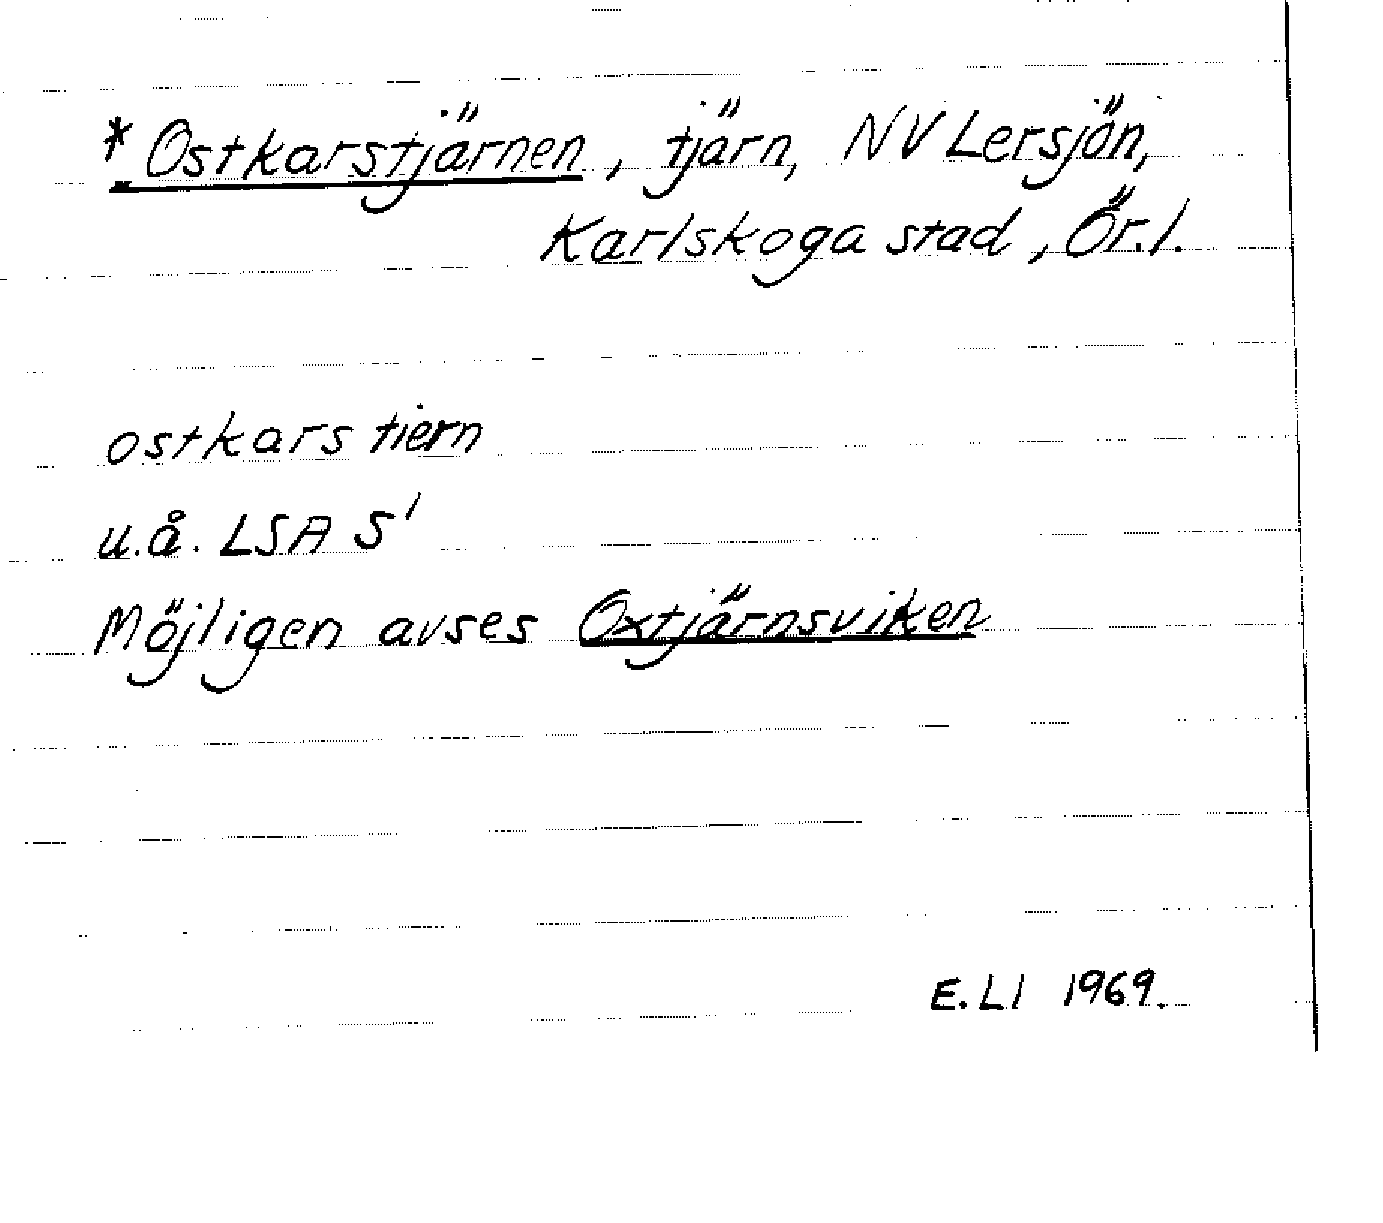 *Ostkarstjärnen, tjärn, NV Lersjön,
Karlskoga stad, Ör. l.
ostkars tiern
u.å. LSA S'
Möjligen avses Oxtjärnsviken
E. LI 1969.